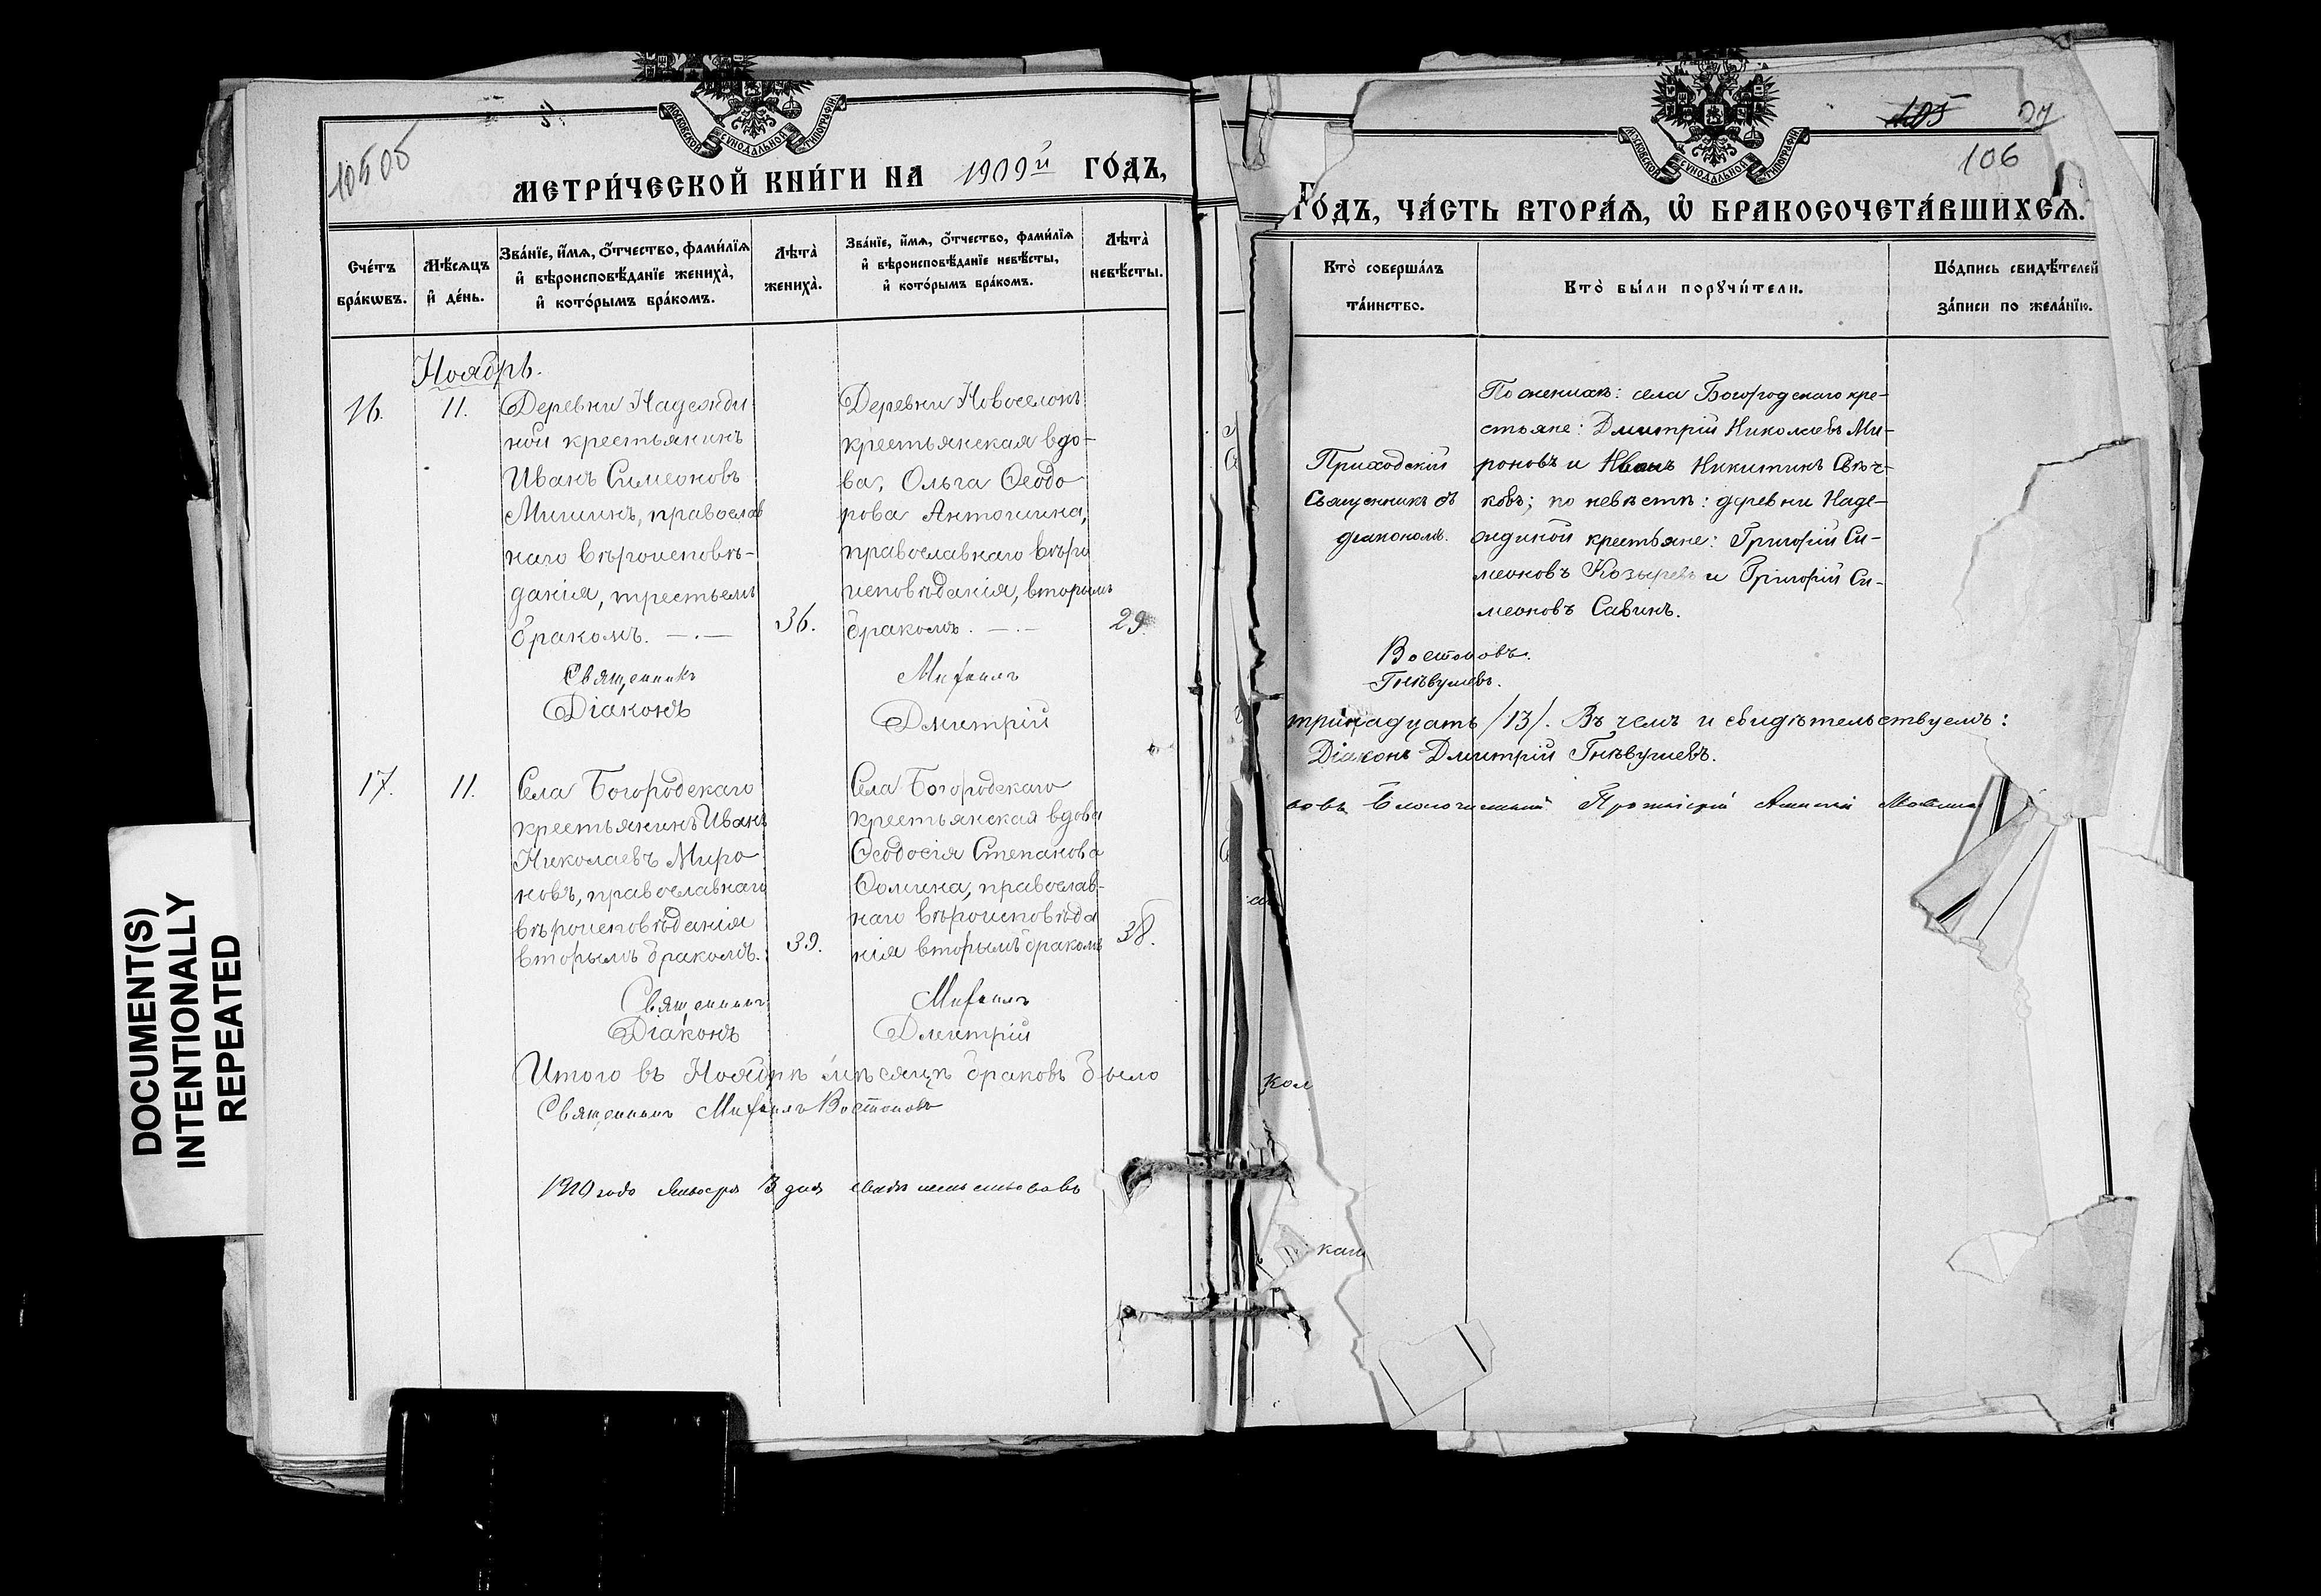 МОСКОВСКОЙ СѴНОДАЛЬНОЙ ТИПОГРАФІИ
МЕТРИ́ЧЕСКОЙ КНИ́ГИ НА 1909й ГО́ДЪ,
Сче́тъ бра́кѡвъ.
Мѣ́сѧцъ и҆ де́нь.
Зва́нїе, и҆́мѧ, ѻ҆́тчество, фами́лїѧ
и҆ вѣроисповѣ́данїе жениха̀,
и҆ кото́рымъ бра́комъ.
Лѣта̀
жениха̀.
Зва́нїе, и҆́мѧ, ѻ҆́тчество, фами́лїѧ
и҆ вѣроисповѣ́данїе невѣ́сты,
и҆ кото́рымъ бра́комъ.
Лѣта̀
невѣ́сты.
Ноябрь.
16.
11.
Деревни Надеждн
ной крестьянинъ
Иванъ Симеоновъ
Мишинъ, православ
наго вѣроисповѣ-
данія, третьемъ
бракомъ. —.—
36.
Деревни Новоселокъ
крестьянская вдо-
ва, Ольга Ѳеодо
рова Антошина,
православнаго вѣро
исповѣданія, вторымъ
бракомъ. —.—
29.
Священникъ Михаилъ
Діаконъ Дмитрій
17.
11.
Села Богородскаго
крестьянинъ Иванъ
Николаевъ Миро
новъ, православнаго
вѣроисповѣданія
вторымъ бракомъ.
39.
Села Богородскаго
крестьянская вдова
Ѳеодосія Степанова
Ѳомина, православ-
наго вѣроисповѣда
нія вторымъ бракомъ
38.
Священникъ Михаилъ
Діаконъ Дмитрій
Итого въ Ноябрѣ мѣсяцѣ браковъ было
Священникъ Михаилъ Востоковъ
1910 года Января 3 дня свидѣтельствовалъ
МОСКОВСКОЙ СѴНОДАЛЬНОЙ ТИПОГРАФІИ
105
106
ГО́ДЪ, ЧА́СТЬ ВТОРА́Ѧ, Ѽ БРАКОСОЧЕТА́ВШИХСѦ.
Кто̀ соверша́лъ
та́инство.
Кто̀ бы́ли порꙋчи́тели.
По́дпись свидѣ́телей
за́писи по жела́нїю.
Приходскій
Священникъ съ
діакономъ.
По женихѣ: села Богородскаго кре-
стьяне: Дмитрій Николаевъ Ми-
роновъ и Иванъ Никитинъ Свѣч-
ковъ; по невѣстѣ: деревни Наде-
ждиной крестьяне: Григорій Си-
меоновъ Козыревъ и Григорій Си-
меоновъ Савинъ.
Востоковъ.
Гнѣвушевъ.
тринадцать /13/. Въ чемъ и свидѣтельствуемъ:
Діаконъ Дмитрій Гнѣвушевъ.
Благочинный Протоіерей
кол
DOCUMENT(S)
INTENTIONALLY
REPEATED